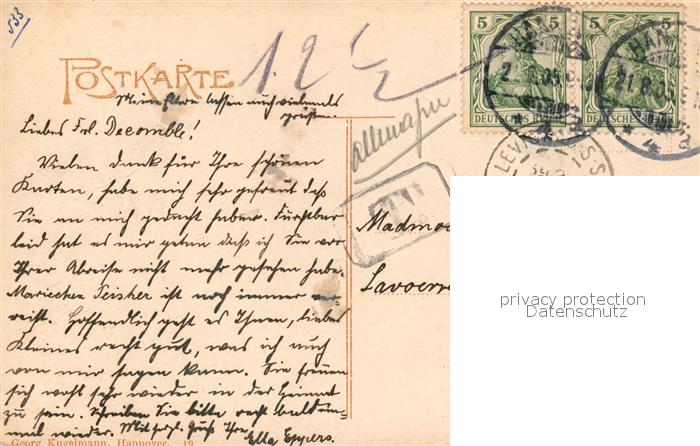 533
POSTKARTE
12
5 5
DEUTSCHES REICH
5 5
DEUTSCHES REICH
Meine Eltern lassen auch vielmals
grüßen.
Liebes Frl. Decomble!
Vielen Dank für Ihre schönen
Karten, habe mich sehr gefreut daß
Sie an mich gedacht haben. Furchtbar
leid hat es mir getan daß ich Sie vor
Ihrer Abreise nicht mehr gesehen habe.
Mariechen Teisker ist noch immer ver-
reist. Hoffentlich geht es Ihnen, liebes
Kleines recht gut, was ich auch
von mir sagen kann. Sie freuen
sich wohl sehr wieder in der Heimat
zu sein. Schreiben Sie bitte recht bald ein-
mal wieder. Mit herzl. Gruß Ihre
Ella Eggers.
Georg Kugelmann, Hannover. 19
allemagne
Madmo
Lavoerr
privacy protection
Datenschutz